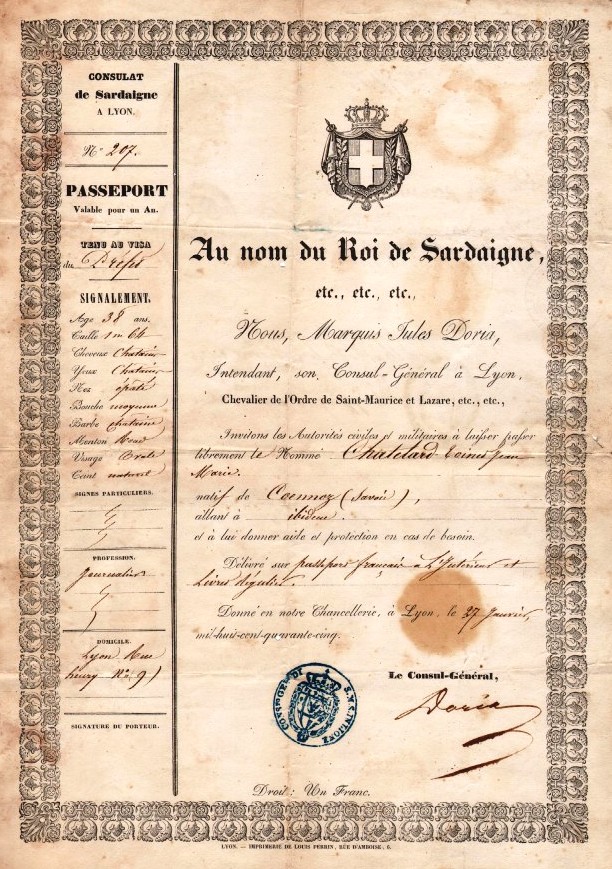 CONSULAT
de Sardaigne
A LYON.
N° 207.
PASSEPORT
Valable pour un An.
TENU AU VISA
du Préfet
SIGNALEMENT.
Age 38 ans.
Taille 1 m 64
Cheveux Chatain
Yeux Chatain
Nez épaté
Bouche moyenne
Barbe chataine
Menton Rond
Visage Ovale
Teint naturel
SIGNES PARTICULIERS.
PROFESSION.
Journalier
DOMICILE.
Lyon Rue
henry No 9
SIGNATURE DU PORTEUR.
Au nom du Roi de Sardaigne,
etc., etc., etc.,
Nous, Marquis Jules Doria,
Intendant, son Consul-Général à Lyon,
Chevalier de l'Ordre de Saint-Maurice et Lazare, etc., etc.,
Invitons les Autorités civiles et militaires à laisser passer
librement le Nommé Chatelard Jean
Marie.
natif de (Savoie),
allant à ibidem.
et à lui donner aide et protection en cas de besoin.
Délivré sur passeport français à L'Intérieur et
Livret régulier.
Donné en notre Chancellerie, à Lyon, le 27 Janvier,
mil-huit-cent-quarante-cinq.
Le Consul-Général,
Doria
CONSOLATO DI S. M. S. IN LIONE
Droit: Un Franc.
LYON. — IMPRIMERIE DE LOUIS PERRIN, RUE D'AMBOISE, 6.